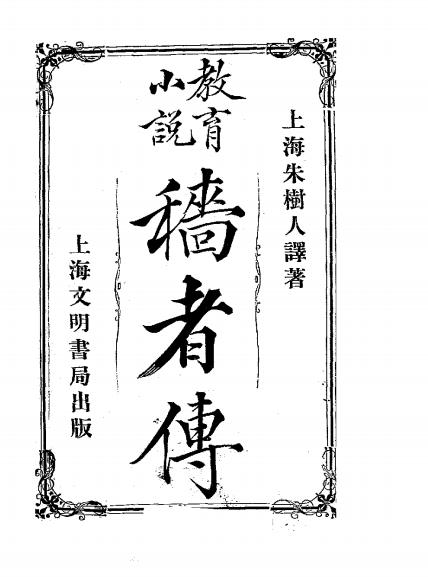 上海朱樹人譯著
教育
小說
穡者傳
上海文明書局出版